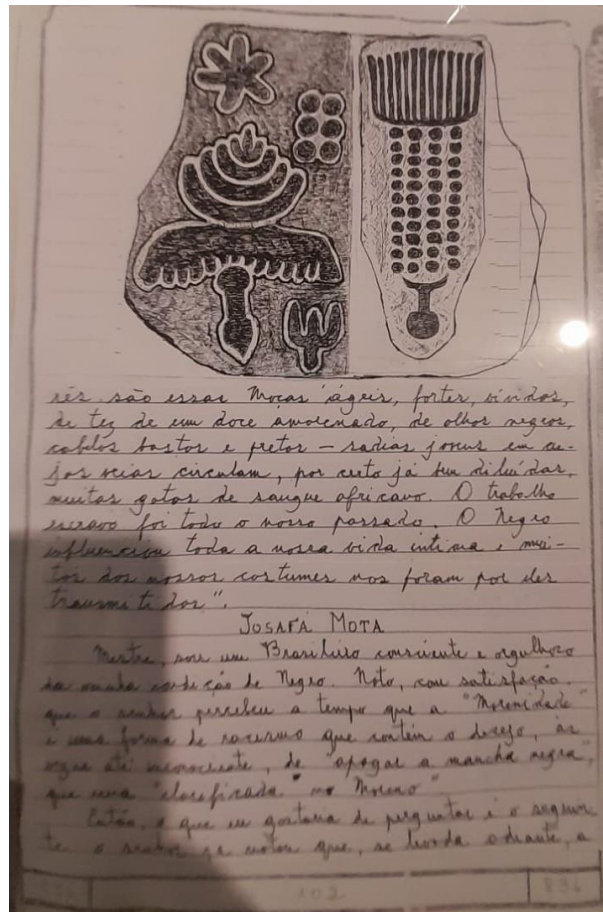 rês são essas Moças ágeis, fortes, vividas,
de tez de um doce amorenado, de olhos negros,
cabelos bastos e pretos — sadias jovens em cu-
jas veias circulam, por certo já bem diluídas,
muitas gotas de sangue africano. O trabalho
escravo foi todo o nosso passado. O Negro
influenciou toda a nossa vida íntima e mui-
tos dos nossos costumes nos foram por eles
transmitidos".
JOSAFÁ MOTA
Mestre, sou um Brasileiro consciente e orgulhoso
da minha condição de Negro. Noto, com satisfação,
que o senhor percebeu a tempo que a "Morenidade"
é uma forma de racismo que contém o desejo, às
vezes até inconsciente, de "apagar a mancha negra",
que seria "clarificada" no Moreno".
Então, o que eu gostaria de perguntar é o seguin-
te: o senhor já notou que, se levada adiante, a
102
836